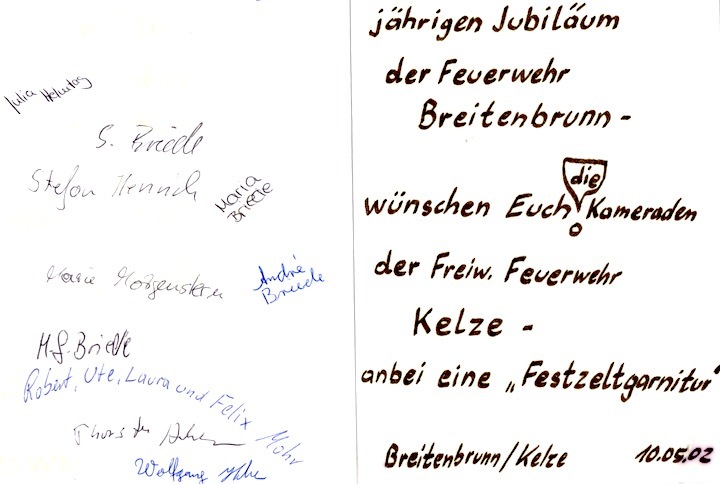 Julia
S. Briede
Stefan Henrich
Maria
Briede
Marie Morgenstern
André
Briede
H.-J. Briede
Robert, Ute, Laura und Felix Mohr
Thorsten
Wolfgang
jährigen Jubiläum
der Feuerwehr
Breitenbrunn -
die
wünschen Euch Kameraden
der Freiw. Feuerwehr
Kelze -
anbei eine „Festzeltgarnitur"
Breitenbrunn/Kelze 10.05.02